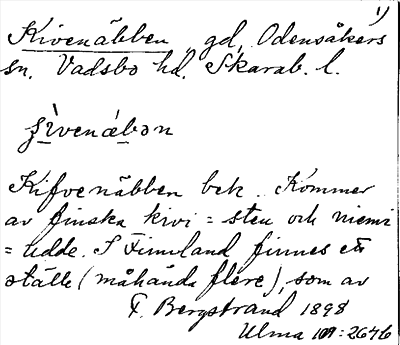 1)
Kivenäbben, gd, Odensåkers
sn. Vadsbo hd. Skarab. l.
ʃìvenǽbən
Kifvenäbben bek. Kommer
av finska kivi = sten och niemi
= udde. I Finnland finnes ett
ställe (måhända flere), som av
F. Bergstrand 1898
Ulma 109:2676